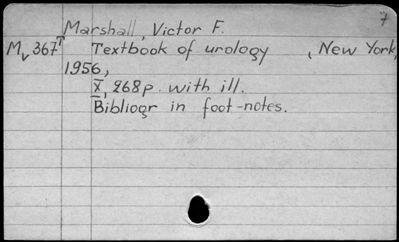 7
Marshall, Victor F.
Mv 367T Textbook of urology, New York,
1956,
X, 268p. with ill.
Bibliogr in foot-notes.